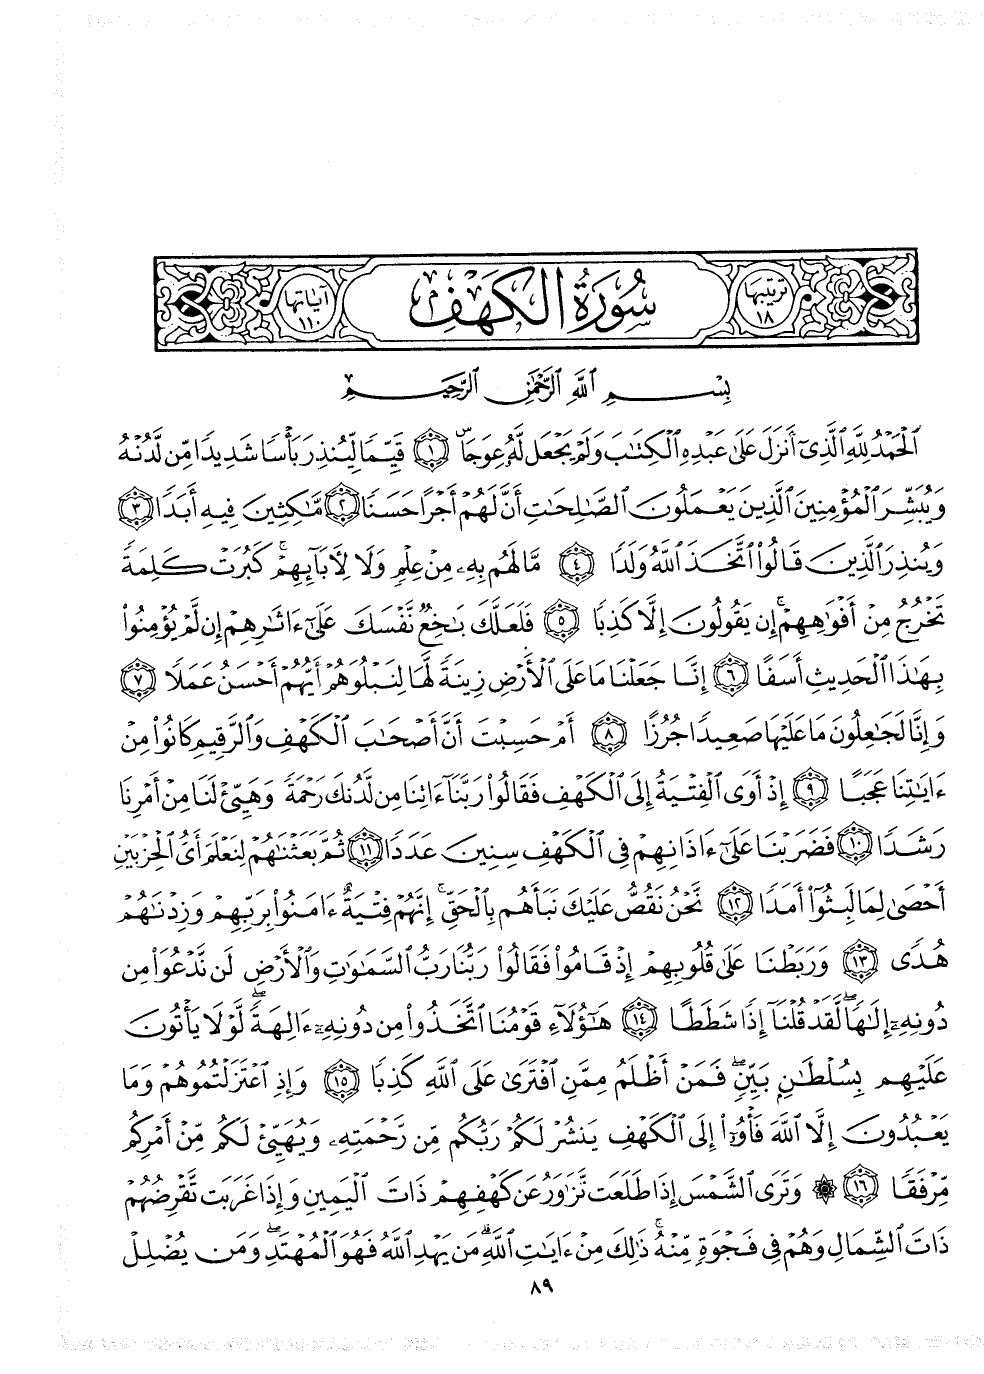 ترتيبها ١٨ سُورَةُ الكَهْفِ آياتها ١١٠
بِسْمِ ٱللَّهِ ٱلرَّحْمَٰنِ ٱلرَّحِيمِ
ٱلْحَمْدُ لِلَّهِ ٱلَّذِىٓ أَنزَلَ عَلَىٰ عَبْدِهِ ٱلْكِتَٰبَ وَلَمْ يَجْعَل لَّهُۥ عِوَجَاۜ ١ قَيِّمًا لِّيُنذِرَ بَأْسًا شَدِيدًا مِّن لَّدُنْهُ
وَيُبَشِّرَ ٱلْمُؤْمِنِينَ ٱلَّذِينَ يَعْمَلُونَ ٱلصَّٰلِحَٰتِ أَنَّ لَهُمْ أَجْرًا حَسَنًا ٢ مَّٰكِثِينَ فِيهِ أَبَدًا ٣
وَيُنذِرَ ٱلَّذِينَ قَالُوا۟ ٱتَّخَذَ ٱللَّهُ وَلَدًا ٤ مَّا لَهُم بِهِۦ مِنْ عِلْمٍ وَلَا لِـَٔابَآئِهِمْ ۚ كَبُرَتْ كَلِمَةً
تَخْرُجُ مِنْ أَفْوَٰهِهِمْ ۚ إِن يَقُولُونَ إِلَّا كَذِبًا ٥ فَلَعَلَّكَ بَٰخِعٌ نَّفْسَكَ عَلَىٰٓ ءَاثَٰرِهِمْ إِن لَّمْ يُؤْمِنُوا۟
بِهَٰذَا ٱلْحَدِيثِ أَسَفًا ٦ إِنَّا جَعَلْنَا مَا عَلَى ٱلْأَرْضِ زِينَةً لَّهَا لِنَبْلُوَهُمْ أَيُّهُمْ أَحْسَنُ عَمَلًا ٧
وَإِنَّا لَجَٰعِلُونَ مَا عَلَيْهَا صَعِيدًا جُرُزًا ٨ أَمْ حَسِبْتَ أَنَّ أَصْحَٰبَ ٱلْكَهْفِ وَٱلرَّقِيمِ كَانُوا۟ مِنْ
ءَايَٰتِنَا عَجَبًا ٩ إِذْ أَوَى ٱلْفِتْيَةُ إِلَى ٱلْكَهْفِ فَقَالُوا۟ رَبَّنَآ ءَاتِنَا مِن لَّدُنكَ رَحْمَةً وَهَيِّئْ لَنَا مِنْ أَمْرِنَا
رَشَدًا ١٠ فَضَرَبْنَا عَلَىٰٓ ءَاذَانِهِمْ فِى ٱلْكَهْفِ سِنِينَ عَدَدًا ١١ ثُمَّ بَعَثْنَٰهُمْ لِنَعْلَمَ أَىُّ ٱلْحِزْبَيْنِ
أَحْصَىٰ لِمَا لَبِثُوٓا۟ أَمَدًا ١٢ نَّحْنُ نَقُصُّ عَلَيْكَ نَبَأَهُم بِٱلْحَقِّ ۚ إِنَّهُمْ فِتْيَةٌ ءَامَنُوا۟ بِرَبِّهِمْ وَزِدْنَٰهُمْ
هُدًى ١٣ وَرَبَطْنَا عَلَىٰ قُلُوبِهِمْ إِذْ قَامُوا۟ فَقَالُوا۟ رَبُّنَا رَبُّ ٱلسَّمَٰوَٰتِ وَٱلْأَرْضِ لَن نَّدْعُوَا۟ مِن
دُونِهِۦٓ إِلَٰهًا ۖ لَّقَدْ قُلْنَآ إِذًا شَطَطًا ١٤ هَٰٓؤُلَآءِ قَوْمُنَا ٱتَّخَذُوا۟ مِن دُونِهِۦٓ ءَالِهَةً ۖ لَّوْلَا يَأْتُونَ
عَلَيْهِم بِسُلْطَٰنٍۭ بَيِّنٍ ۖ فَمَنْ أَظْلَمُ مِمَّنِ ٱفْتَرَىٰ عَلَى ٱللَّهِ كَذِبًا ١٥ وَإِذِ ٱعْتَزَلْتُمُوهُمْ وَمَا
يَعْبُدُونَ إِلَّا ٱللَّهَ فَأْوُۥٓا۟ إِلَى ٱلْكَهْفِ يَنشُرْ لَكُمْ رَبُّكُم مِّن رَّحْمَتِهِۦ وَيُهَيِّئْ لَكُم مِّنْ أَمْرِكُم
مِّرْفَقًا ١٦ ۞ وَتَرَى ٱلشَّمْسَ إِذَا طَلَعَت تَّزَٰوَرُ عَن كَهْفِهِمْ ذَاتَ ٱلْيَمِينِ وَإِذَا غَرَبَت تَّقْرِضُهُمْ
ذَاتَ ٱلشِّمَالِ وَهُمْ فِى فَجْوَةٍ مِّنْهُ ۚ ذَٰلِكَ مِنْ ءَايَٰتِ ٱللَّهِ ۗ مَن يَهْدِ ٱللَّهُ فَهُوَ ٱلْمُهْتَدِ ۖ وَمَن يُضْلِلْ
٨٩